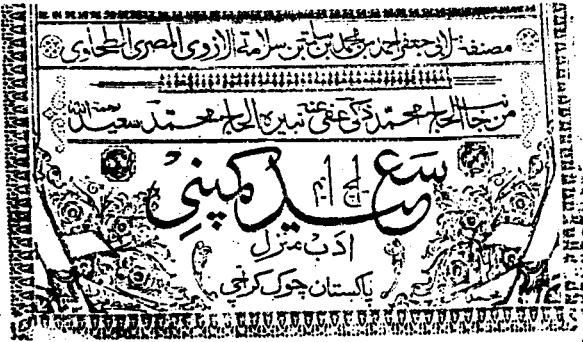 مصنفہ لابی جعفر احمد بن محمد بن سلمۃ بن سلامۃ الازدی المصری الطحاوی
من جانب الحاج محمد ذکی عفی عنہ نبیرہ الحاج محمد سعید رحمۃ اللہ
ایچ ایم سعید کمپنی
ادب منزل
پاکستان چوک کراچی